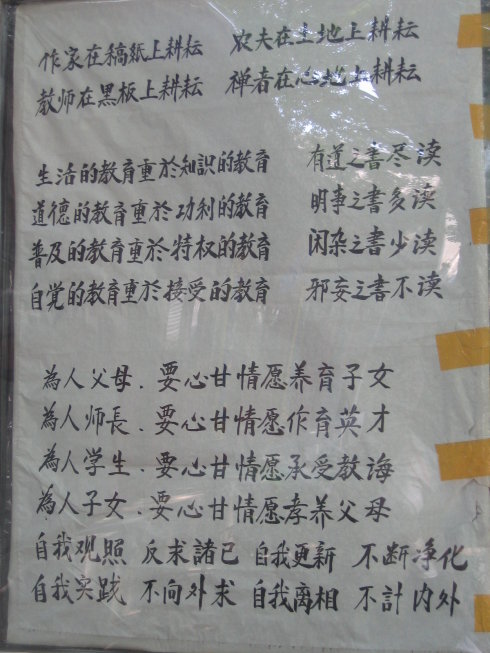 作家在稿紙上耕耘 农夫在土地上耕耘
教师在黑板上耕耘 禅者在心地上耕耘
生活的教育重於知識的教育 有道之書尽读
道德的教育重於功利的教育 明事之書多读
普及的教育重於特权的教育 闲杂之書少读
自觉的教育重於接受的教育 邪妄之書不读
為人父母、要心甘情愿养育子女
為人师長、要心甘情愿作育英才
為人学生 要心甘情愿承受教诲
為人子女 要心甘情愿孝养父母
自我观照 反求諸己 自我更新 不断净化
自我实践 不向外求 自我离相 不計内外